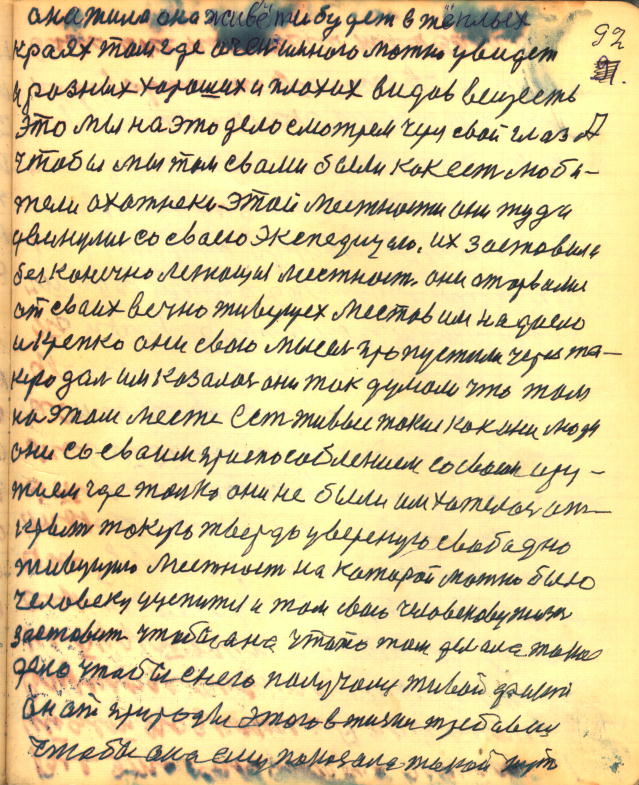 она жила она живё ти будет в тёплых
краях том где очен много можно увидет
и разных хороших и плохих видов веществ
92
Это мы на это дело смотрем через свой глаз А
чтобы мы том свами были как ест люби-
тели охотнеки этой местности они туда
двинулис со своею экспедицаю. их заставила
без конечно лежащая местност. они оторвалис
от своих вечно живущех местов им надоело
и крепко они свою мысел пропустили через та-
кую дал им казалос они так думали что там
на этом месте ест живые такие как они люди
они со своим приспособлением со своим ору-
жием где толко они не были им хотелос от-
крыт такую твердо увереную свабадно
живущую местност на которой можно было
человеку уцепится и том свою человекову жизн
заставит чтобы она чтото там делала такое
дело чтобы снего получался живой факт
Он от природы этого в жизни требовал
чтобы она ему показала такой пут